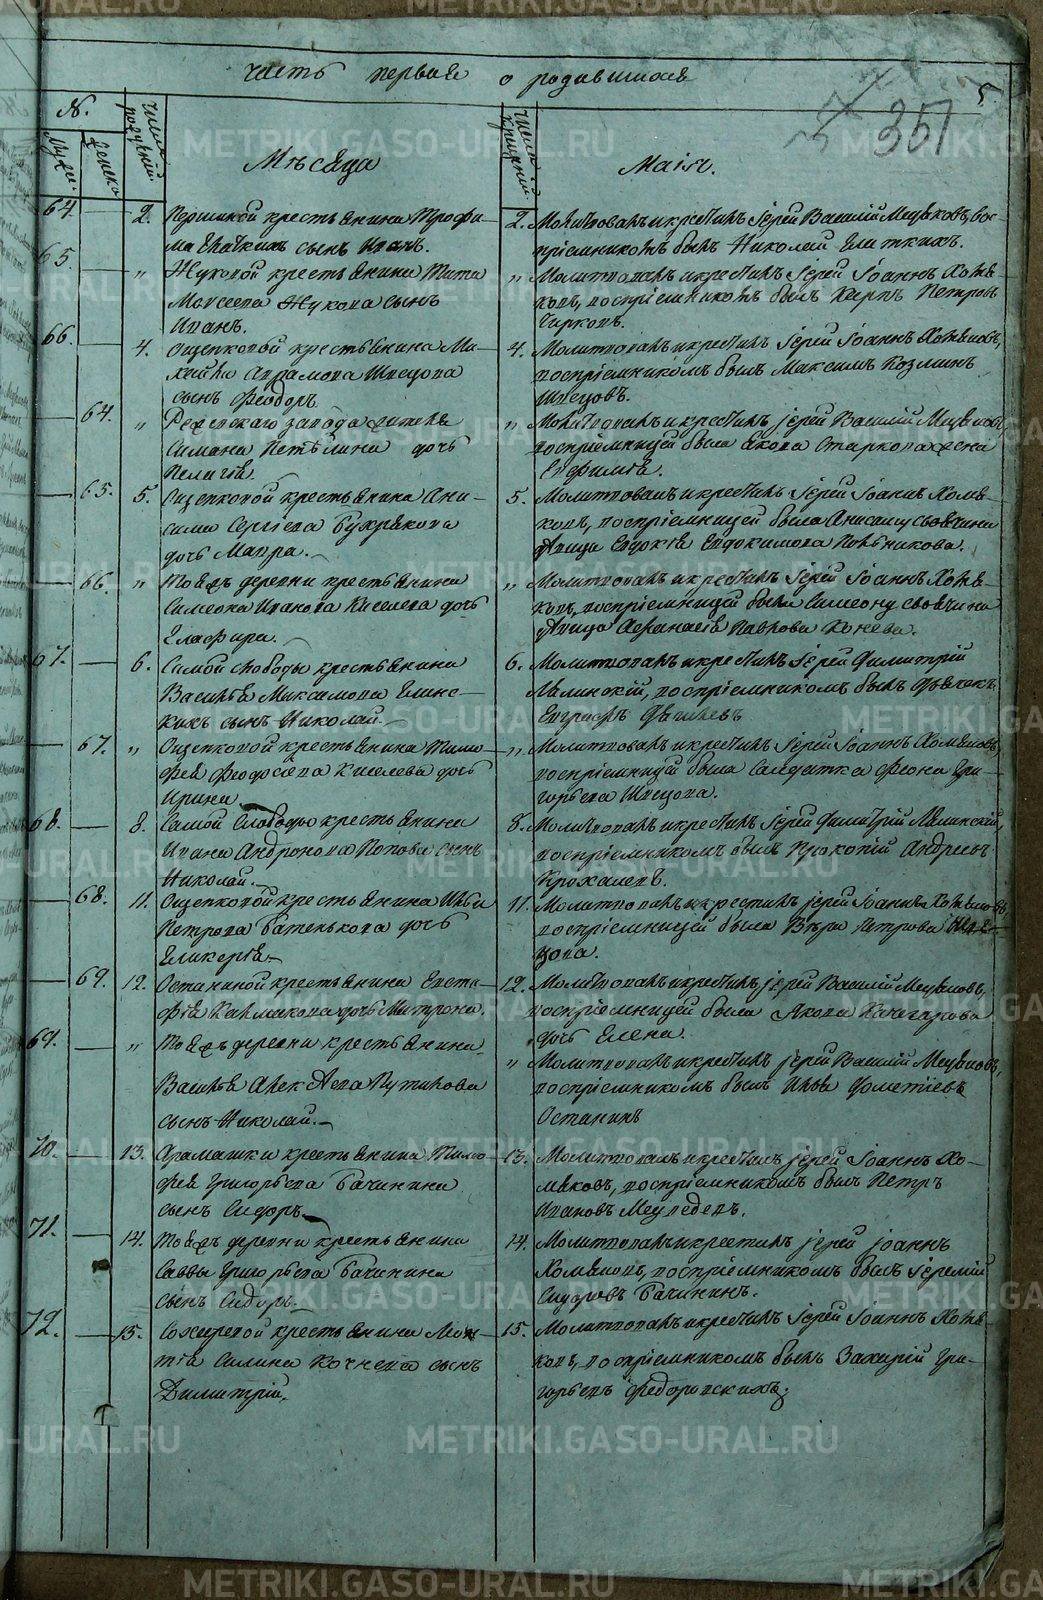 часть первая о родившихся
5
351
№.
Муж:
Женска
Числа рождений.
Мѣсяца
Числа крещений
Маія.
64. 2. крестьянина Трофи-
ма сынъ
2. Молитвовалъ и крестилъ Іерей Василій вос-
пріемникомъ былъ Николай
65. „ Жуковой крестьянина Тита
Моисеева Жукова сынъ
Иванъ.
„ Молитвовалъ и крестилъ Іерей Іоаннъ Хомя-
ковъ, воспріемникомъ былъ Карпъ Петровъ
Чирковъ.
66. 4. Ощепковой крестьянина Ми-
хайла Абрамова Швецова
сынъ Феодоръ.
4. Молитвовалъ и крестилъ Іерей Іоаннъ Хомяковъ,
воспріемникомъ былъ Максимъ Козминъ
Швецовъ.
64. „ Режевскаго завода жителя
Симана дочь
Пелагія.
„ Молитвовалъ и крестилъ іерей Василій
воспріемницей была Якова Старкова жена
Евфимія.
65. 5. Ощепковой крестьянина Ани-
сима Сергіева Букрякова
дочь Мавра.
5. Молитвовалъ и крестилъ Іерей Іоаннъ Хомя-
ковъ, воспріемницей была Анисиму своячина
дѣвица Евдокія Евдокимова
66. „ Той жъ деревни крестьянина
Симеона Иванова Киселева дочь
Глафира.
„ Молитвовалъ и крестилъ Іерей Іоаннъ Хомя-
ковъ, воспріемницей была Симеону своячина
дѣвица Афанасія Павлова Конева.
67. 6. Самой слободы крестьянина
Василья Максимова Глинс-
кихъ сынъ Николай.
6. Молитвовалъ и крестилъ Іерей Димитрій
воспріемникомъ былъ
Евграфъ
67. „ Ощепковой крестьянина Тимо-
фея Феодосѣева Киселева дочь
Ирина
„ Молитвовалъ и крестилъ Іерей Іоаннъ Хомяковъ,
воспріемницей была Салдатка Феона Гри-
горьева Швецова.
68. 8. Самой Слободы крестьянина
Ивана Андронова Попова сынъ
Николай.
8. Молитвовалъ и крестилъ Іерей Димитрій
воспріемникомъ былъ Прокопій Андреевъ
Крохалевъ.
68. 11. Ощепковой крестьянина Ильи
Петрова Батенькова дочь
Гликерія
11. Молитвовалъ и крестилъ іерей Іоаннъ Хомяковъ,
воспріемницей была Вѣра Петрова Шве-
цова.
69. 12. Останиной крестьянина Евста-
фія Калмакова дочь Матрона.
12. Молитвовалъ и крестилъ іерей Василій
воспріемницей была Якова Качегарова
дочь Елена.
69. „ Той жъ деревни крестьянина
Василья Алексѣева Путилова
сынъ Николай.
„ Молитвовалъ и крестилъ іерей Василій
воспріемникомъ былъ Илья
Останинъ
70. 13. Арамашки крестьянина Тимо-
фея Григорьева Бачинина
сынъ Сидоръ.
13. Молитвовалъ и крестилъ іерей Іоаннъ Хо-
мяковъ, воспріемникомъ былъ Петръ
Ивановъ Медведевъ.
71. 14. Той жъ деревни крестьянина
Саввы Григорьева Бачинина
сынъ Сидоръ.
14. Молитвовалъ и крестилъ іерей Іоаннъ
Хомяковъ, воспріемникомъ былъ Іеремій
Сидоровъ Бачининъ.
72. 15. крестьянина
Силина Кочнева сынъ
Димитрій.
15. Молитвовалъ и крестилъ Іерей Іоаннъ Хомя-
ковъ, воспріемникомъ былъ Захарій Гри-
горьевъ Федоровскихъ.
METRIKI.GASO-URAL.RU